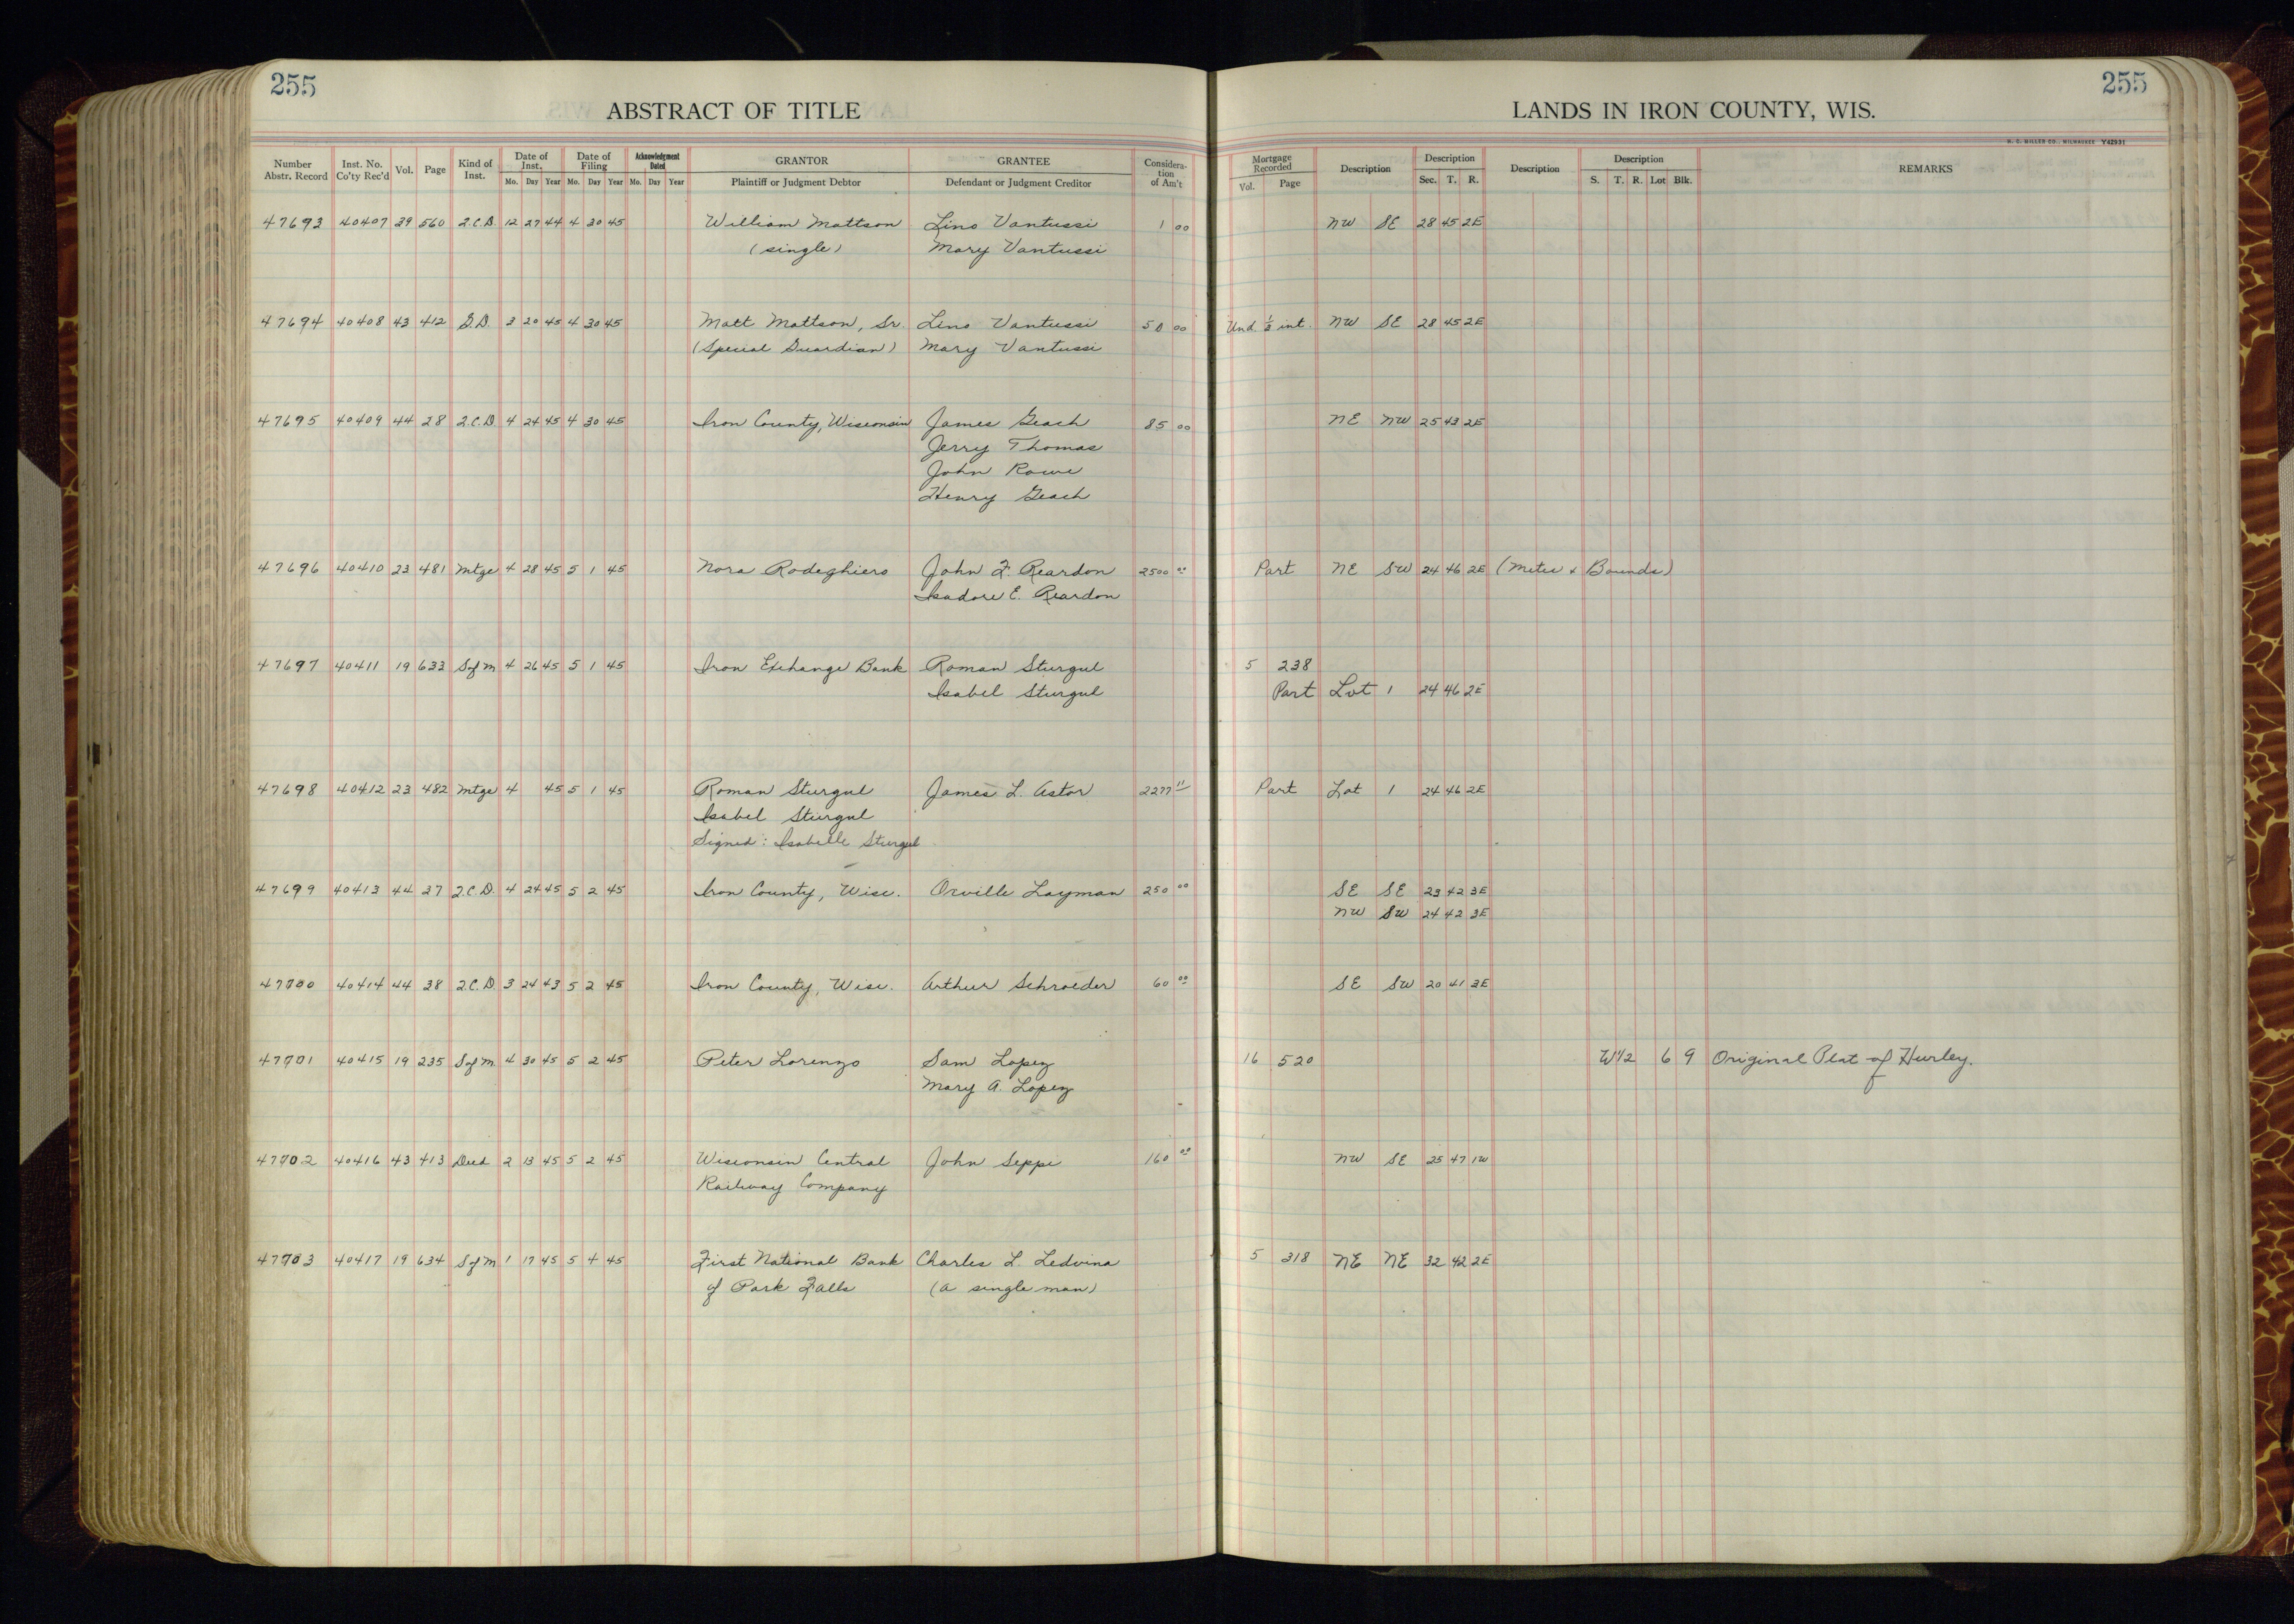 255
255
ABSTRACT OF TITLE
LANDS IN IRON COUNTY, WIS.
H. C. MILLER CO., MILWAUKEE Y42931
Number Abstr. Record Inst. No. Co'ty Rec'd Vol. Page Kind of Inst. Date of Inst. Mo. Day Year Date of Filing Mo. Day Year Acknowledgment Dated Mo. Day Year GRANTOR Plaintiff or Judgment Debtor GRANTEE Defendant or Judgment Creditor Considera-tion of Am't Mortgage Recorded Vol. Page Description Description Sec. T. R. Description Description S. T. R. Lot Blk. REMARKS
47693 40407 39 560 2.C.D. 12 27 44 4 30 45 William Mattson Lino Vantussi 1 00 NW SE 28 45 2E
(single) Mary Vantussi
47694 40408 43 412 G.D. 3 20 45 4 30 45 Matt Mattson, Sr. Lino Vantussi 50 00 Und 1/3 int. NW SE 28 45 2E
(Special Guardian) Mary Vantussi
47695 40409 44 28 2.C.D. 4 24 45 4 30 45 Iron County, Wisconsin James Geach 85 00 NE NW 25 43 2E
Jerry Thomas
John Rowe
Henry Geach
47696 40410 23 481 Mtge 4 28 45 5 1 45 Nora Rodeghiero John F. Reardon 2500 00 Part NE SW 24 46 2E (Metes & Bounds)
Isadore E. Reardon
47697 40411 19 633 S of M 4 26 45 5 1 45 Iron Exchange Bank Roman Sturgul 5 238
Isabel Sturgul Part Lot 1 24 46 2E
47698 40412 23 482 Mtge 4 45 5 1 45 Roman Sturgul James L. Astor 2277 11 Part Lot 1 24 46 2E
Isabel Sturgul
Signed: Isabelle Sturgul
47699 40413 44 27 2.C.D. 4 24 45 5 2 45 Iron County, Wisc. Orville Layman 250 00 SE SE 23 42 3E
NW SW 24 42 3E
47700 40414 44 38 2.C.D. 3 24 43 5 2 45 Iron County, Wisc. Arthur Schroeder 60 00 SE SW 20 41 3E
47701 40415 19 235 S of M. 4 30 45 5 2 45 Peter Lorenzo Sam Lopez 16 520 W1/2 6 9 Original Plat of Hurley.
Mary A. Lopez
47702 40416 43 413 Deed 2 13 45 5 2 45 Wisconsin Central John Seppi 160 00 NW SE 25 47 1W
Railway Company
47703 40417 19 634 S of M 1 17 45 5 4 45 First National Bank Charles L. Ledvina 5 318 NE NE 32 42 2E
of Park Falls (a single man)